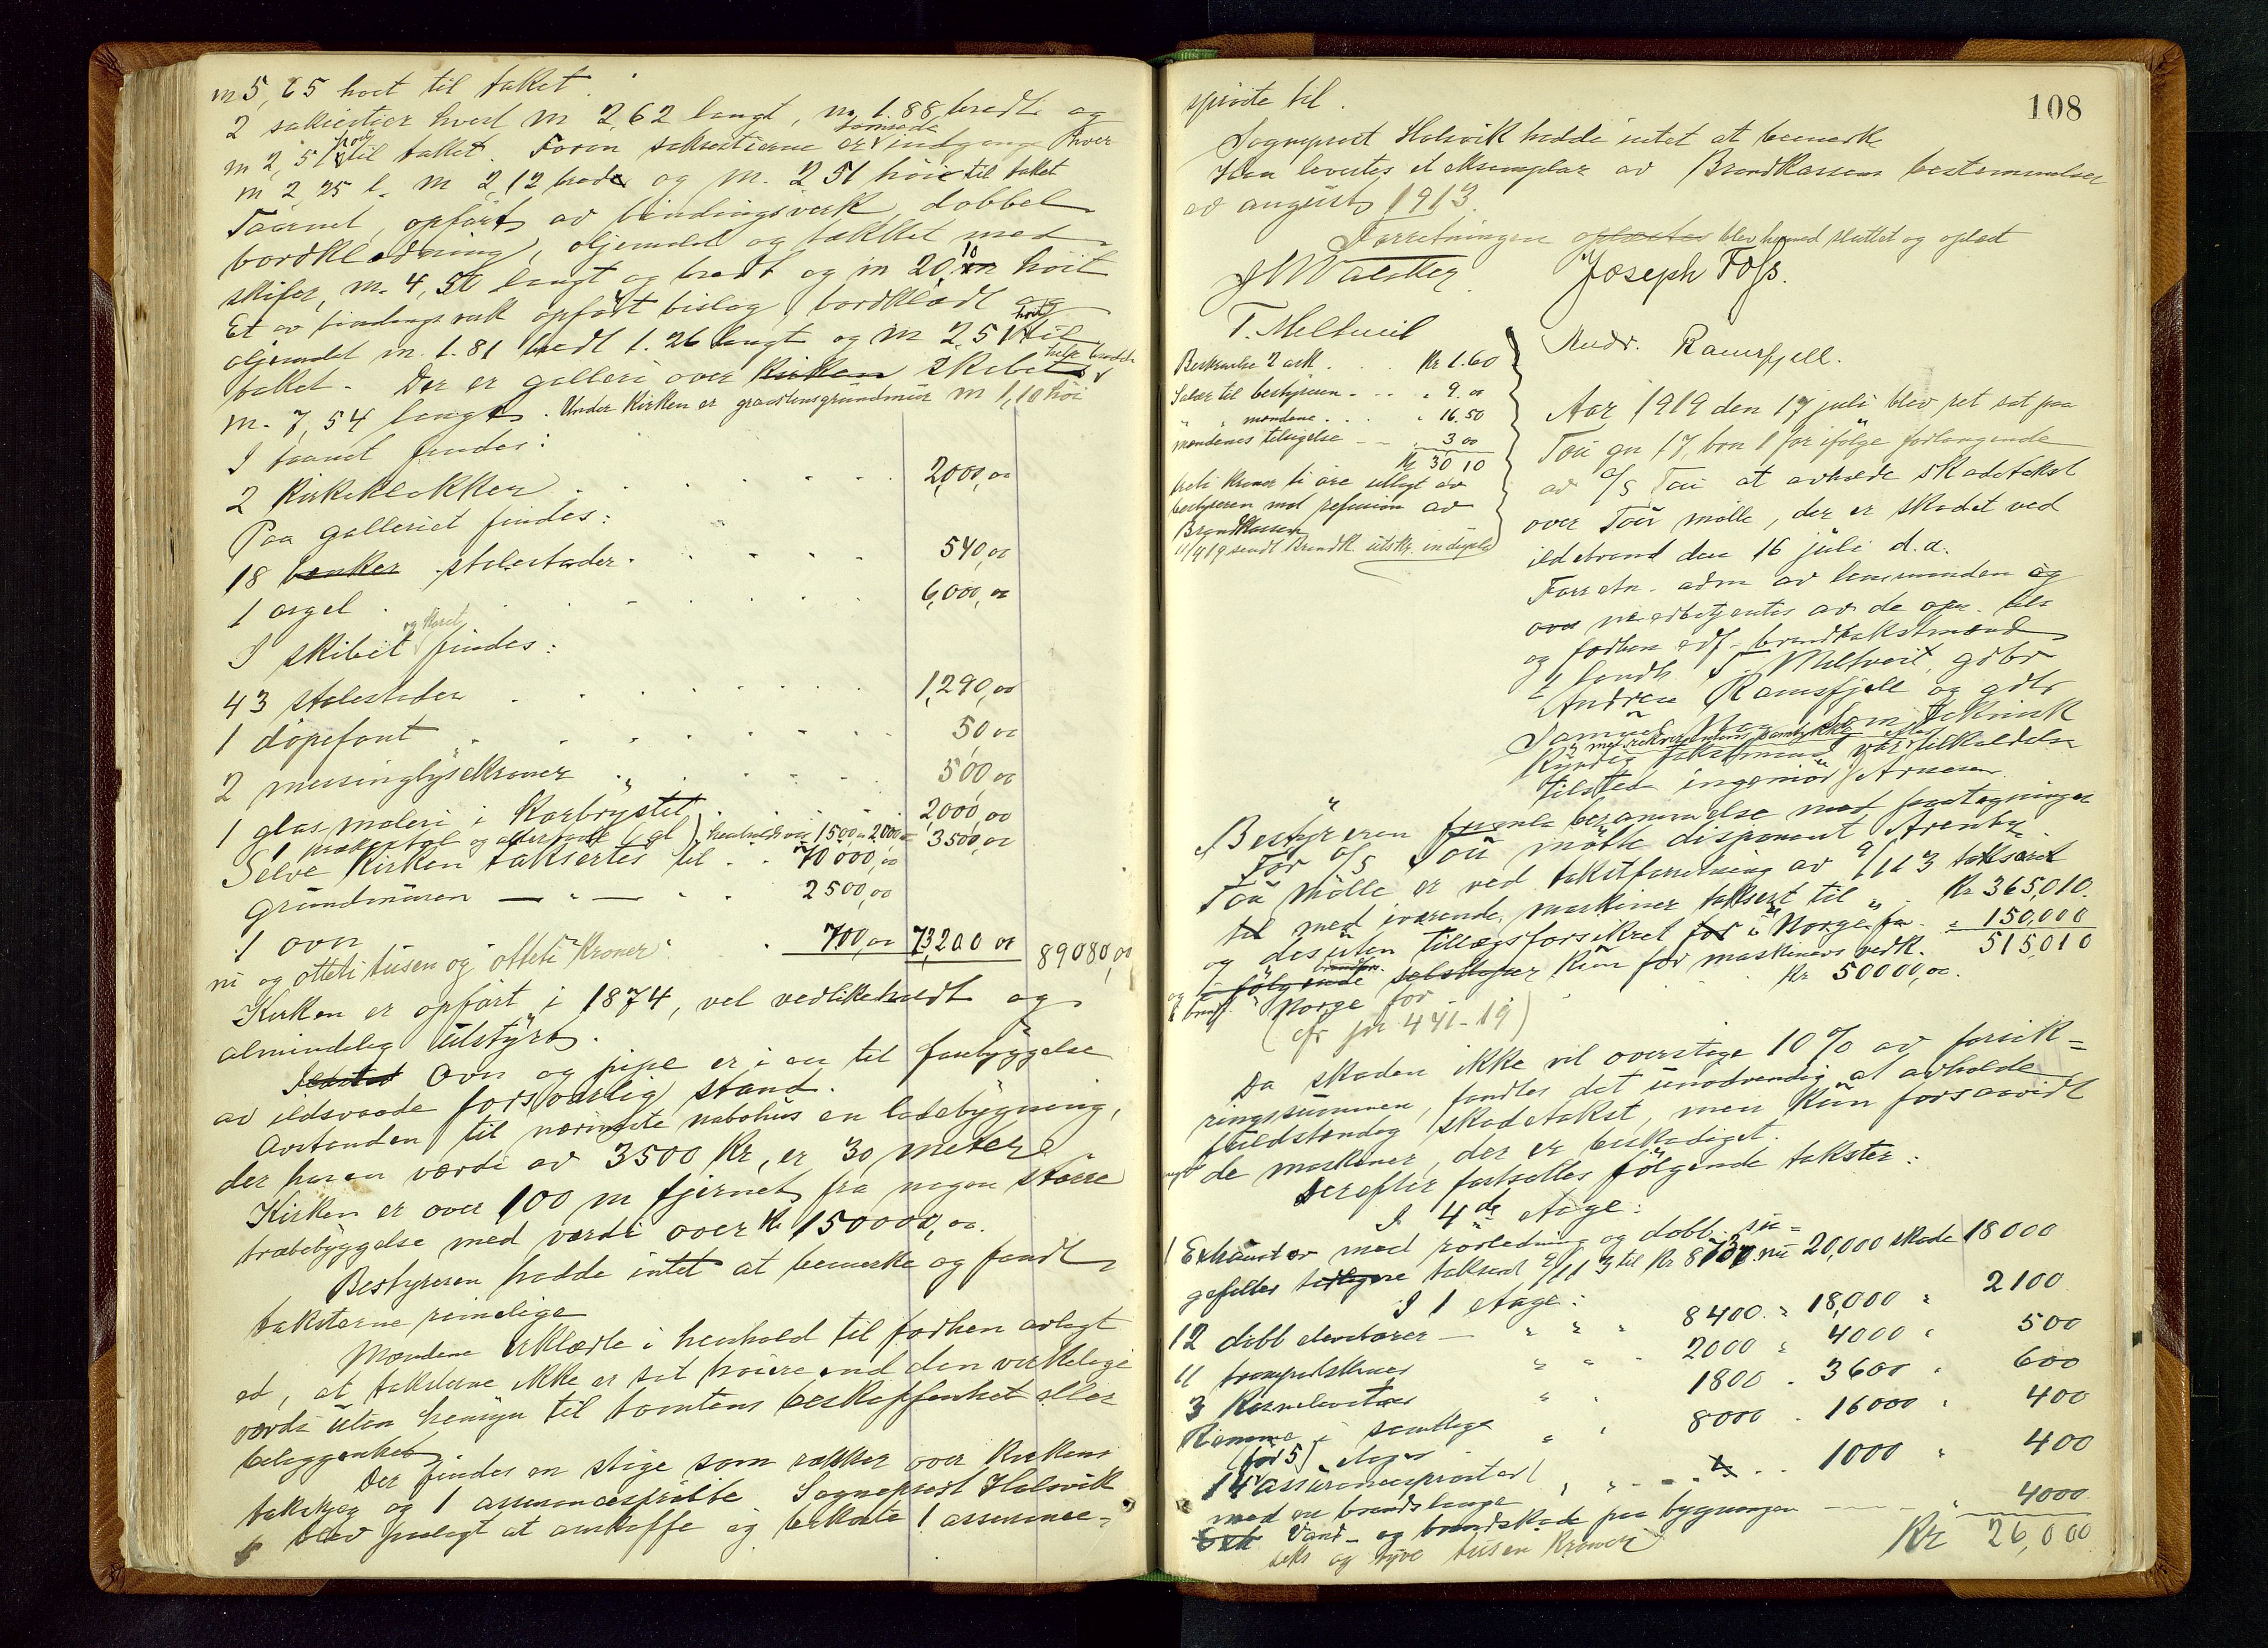 m 5,65 høit til taket.
2 sakristier hvert m 2,62 langt, m 1.88 bredt og
m 2,51 høit til taket. Foran sakristierne er samsede indgange hver
m 2,25 l. m 2,12 brede og m. 2 51 høie til taket
Taarnet, opført av bindingsverk, dobbel
bordklædning, oljemalet og tækket med
skifer, m. 4,50 langt og bredt og m 20,10 høit
Et av bindingsverk opført bislag, bordklædt og
oljemalet m. 1.81 bredt 1.26 langt og m 2,51 høit til
taket. Der er galleri over Kirken skibets hele bredde
m. 7,54 langt. Under Kirken er graastensgrundmur m 1,10 høi
I taarnet findes:
2 Kirkeklokker 2,000,00
Paa galleriet findes:
18 bænker stolestader 540,00
1 orgel 6,000,00
I skibet og Koret findes:
43 stolestader 1,290,00
1 døpefont 50,00
2 messinglysekroner 500,00
1 glasmaleri i Korbrystet 2000,00
1 prækestol og altertavle (gl) henholdsvis 1500,00 2,000,00 3500,00
Selve Kirken taksertes til 70000,00
Grundmuren 2500,00
1 ovn 700,00 73,200 00 89080,00
ni og otteti tusen og otteti Kroner
Kirken er opført i 1874, vel vedlikeholdt og
almindelig utstyrt.
Ildsted Ovn og pipe er i en til forebyggelse
av ildsvaade forsvarlig stand.
Avstanden til nærmeste nabohus en ladebygning,
der har en værdi av 3500 Kr, er 30 meter
Kirken er over 100 m fjernet fra nogen større
træbebyggelse med værdi over Kr 150000,00.
Bestyreren hadde intet at bemerke og fandt
taksterne rimelige
Mændene erklærte i henhold til forhen avlagt
ed, at taksterne ikke er sat høiere end den virkelige
værdi uten hensyn til tomtens beskaffenhet eller
beliggenhet.
Der findes en stige som rækker over Kirkens
takskjæg og 1 assurancesprøite Sogneprest Halsvik
blev paalagt at anskaffe og bekoste 1 assurance-
108
sprøite til.
Sogneprest Halsvik hadde intet at bemerke
Han levertes et eksemplar av Brandkassens bestemmelser
av august 1913.
Forretningen oplæstes blev hermed sluttet og oplæst
Joseph Foss.
T. Meltveit
Andr. Ramsfjell.
Beskrivelse 2 ark Kr 1.60
Salær til bestyreren 9.00
" " mændene 16.50
mændenes tilsigelse 3 00
Kr 30 10
treti Kroner ti øre utlagt av
bestyreren mot refusion av
Brandkassen
11/9 19 sendt Brandk. utskr. in duplo
Aar 1919 den 17 juli blev ret sat paa
Tou gn 17, brn 1 for ifølge forlangende
av A/S Tou at avholde skadetakst
over Tou mølle, der er skadet ved
ildebrand den 16 juli d.a.
Forretn. adm av lensmanden og
ova medbetjentes av de opn. als
og forhen edf. brandtakstmænd
landh. T. Meltveit, gdbr
Andreas Ramsfjell og gdbr
Som teknisk
Kyndig med rekvirentens samtykke takstmand var efter tilkaldelse
tilstede ingeniør Arnesen
Bestyreren fremla berammelse med paategninger
For A/S Tou mølle disponent Arenby.
Tou Mølle er ved takstforretning av 9/11 13 taksert
til med iværende maskiner taksert til Kr 365,010.
og desuten tillægsforsikret for i Norge for 150,000
515,010
i følgende brandfors. selskaper Kun for maskiners vedk.
og i brandf. Norge for Kr 50000,00.
(cfr jnr 441-19)
Da skaden ikke vil overstige 10% av forsik=
ringssummen, fandtes det unødvendig at avholde
fuldstændig skadetakst, men Kun forsaavidt
de maskiner, der er beskadiget.
Derefter fastsattes følgende takster:
I 4de etage:
1 Exhaustor med rørledning og dobb. su=
gefilter tidligere taksert 9/11 13 til Kr 8700 nu 20,000 skade 18000
I 1 etage:
12 dobb elevatorer 8400 " 18,000 " 2100
11 transportskruer 2000 " 4000 " 500
3 Kornelevatorer 1800 " 3600 " 600
Remme i samtlige 8000 " 16000 " 400
(før 5) etager
14 assurancesprøiter 1000 " 400
med en brandslange
Vand- og brandskade paa bygningen 4000
seks og tyve tusen Kroner Kr 26,000